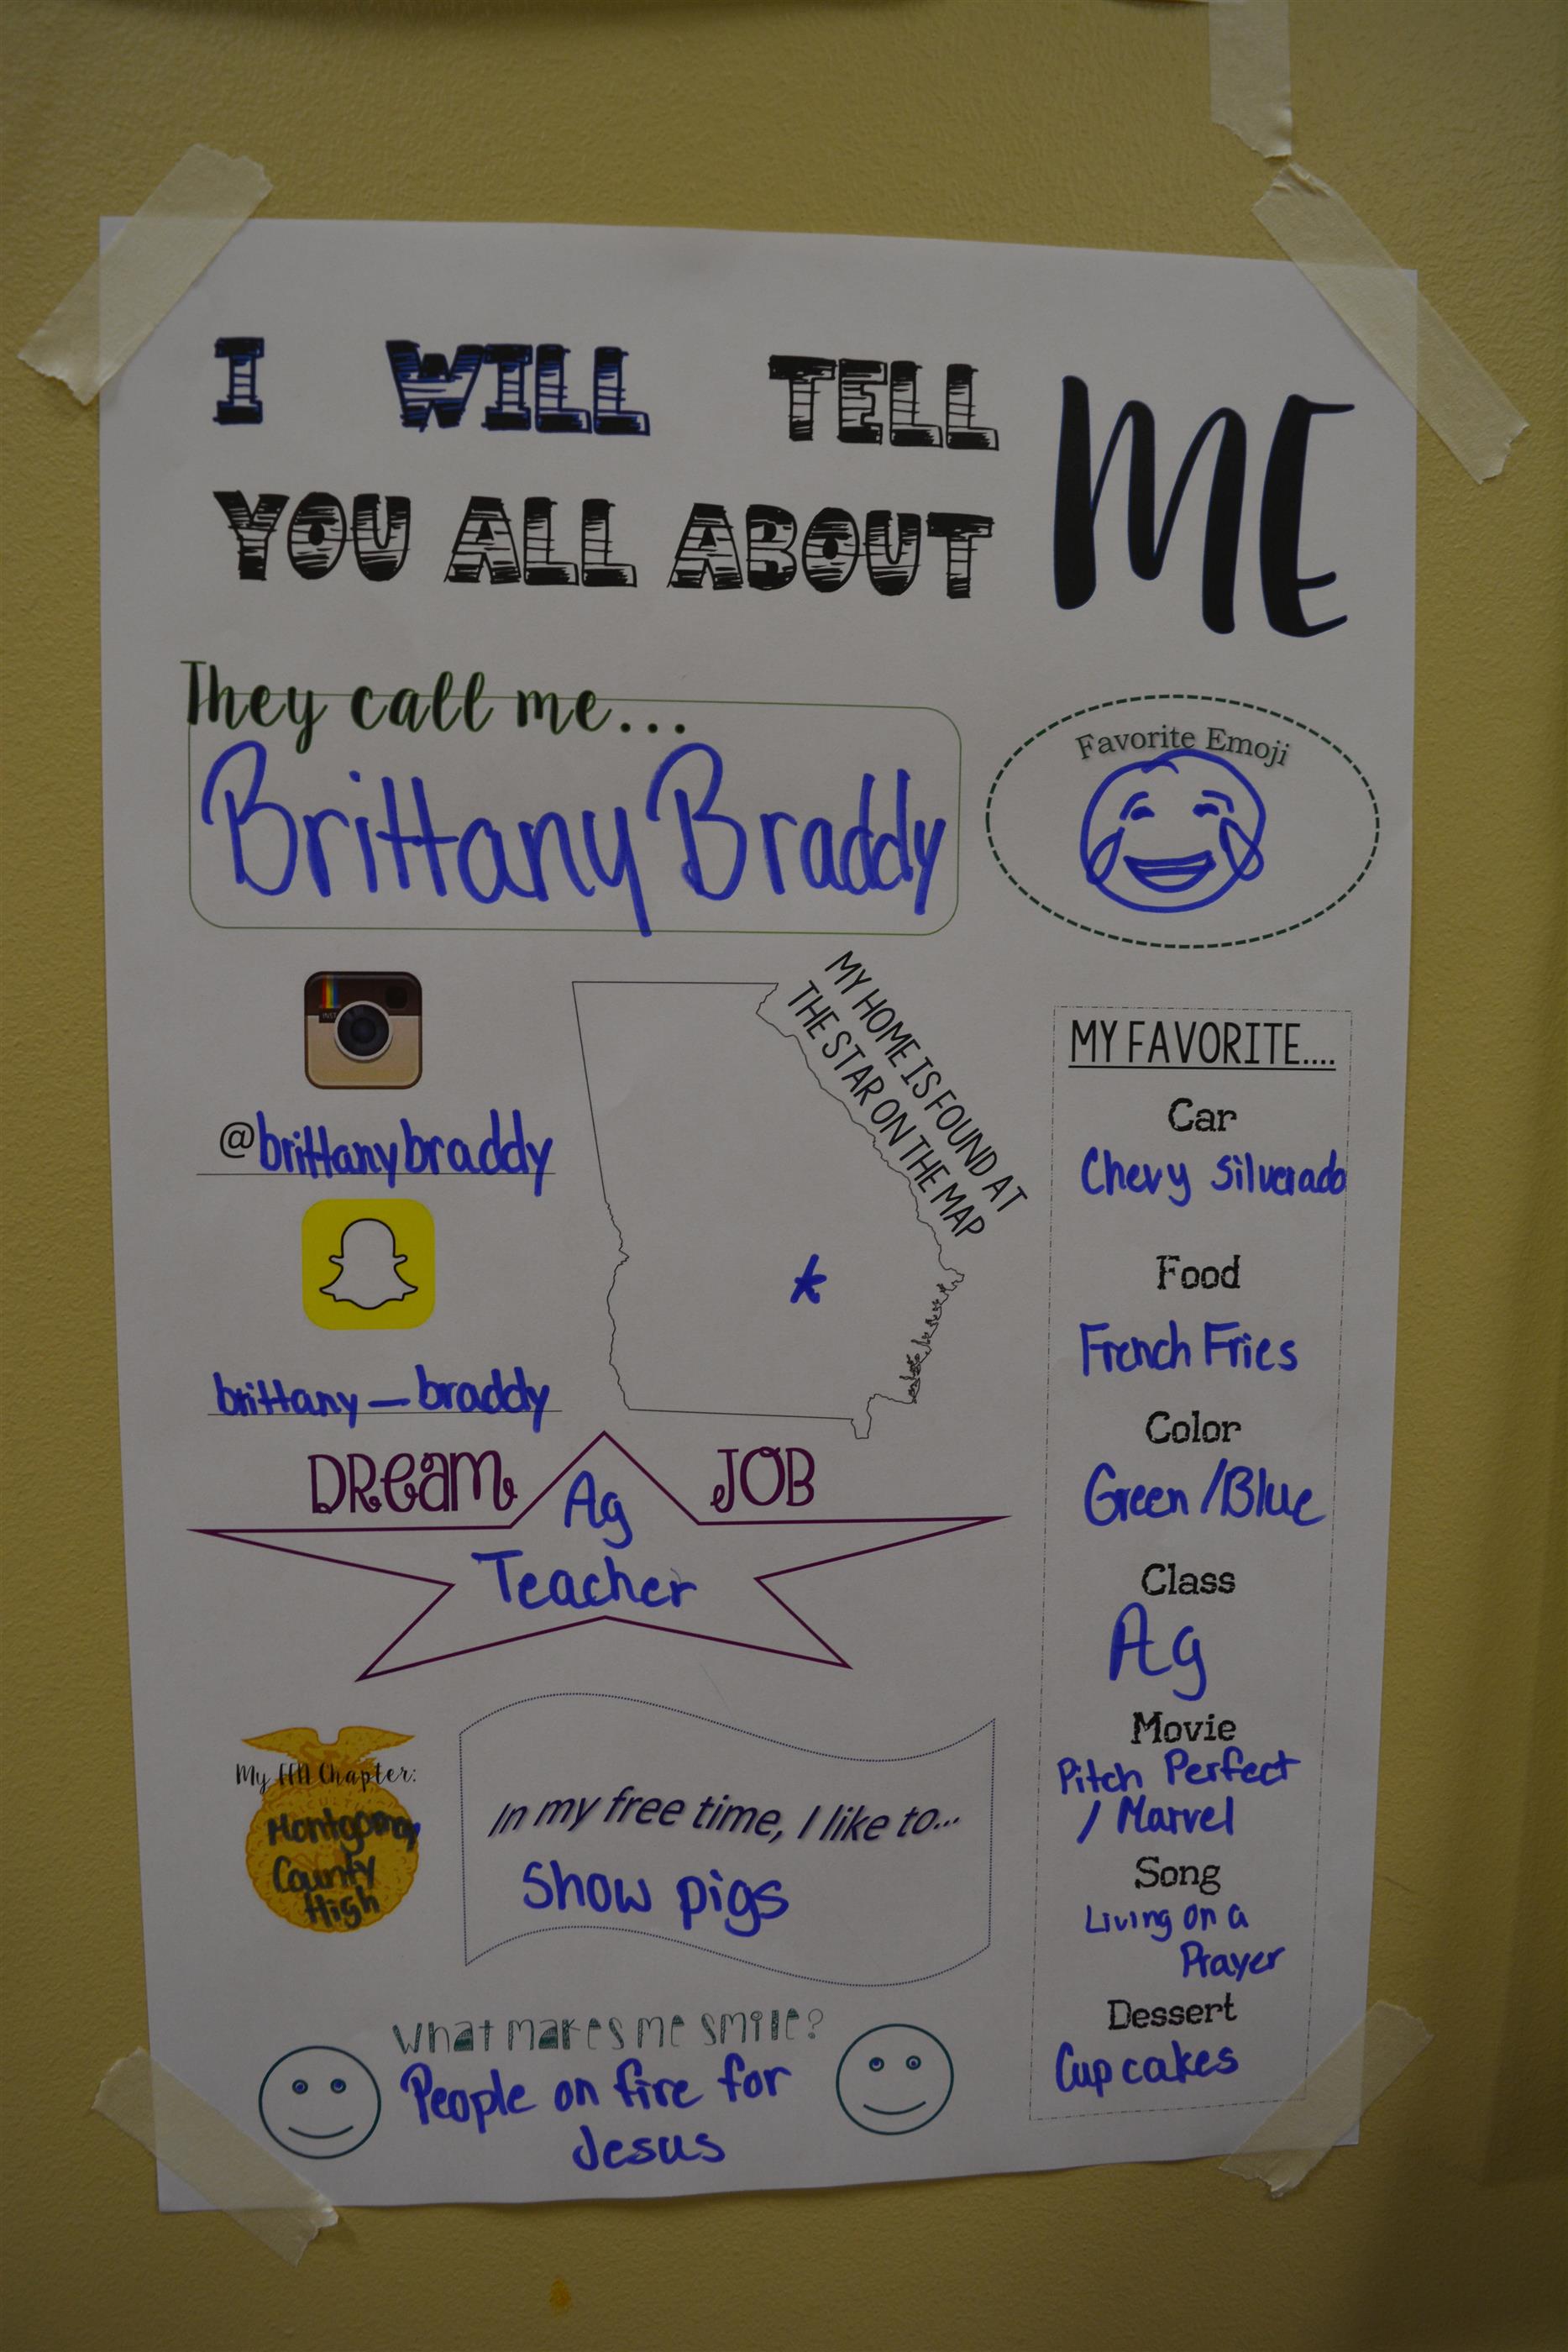 I WILL TELL
YOU ALL ABOUT
ME
They call me...
Brittany Braddy
Favorite Emoji
@brittanybraddy
brittany_braddy
MY HOME IS FOUND AT
THE STAR ON THE MAP
DREAM JOB
Ag
Teacher
My FFA Chapter:
Montgomery
County
High
In my free time, I like to...
Show pigs
What makes me smile?
People on fire for
Jesus
MY FAVORITE....
Car
Chevy Silverado
Food
French Fries
Color
Green/Blue
Class
Ag
Movie
Pitch Perfect
/ Marvel
Song
Living on a
Prayer
Dessert
Cupcakes